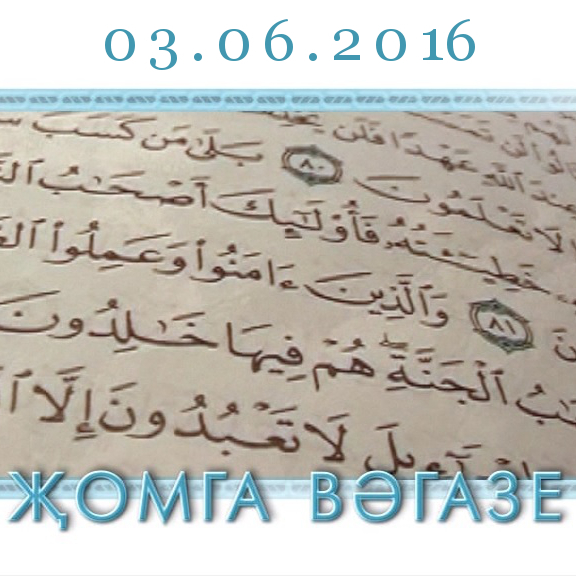 03.06.2016
عِندَ ٱللَّهِ عَهْدًا فَلَن
لَا تَعْلَمُونَ ٨٠ بَلَىٰ مَن كَسَبَ
خَطِيٓـَٔتُهُۥ فَأُو۟لَٰٓئِكَ أَصْحَٰبُ
٨١ وَٱلَّذِينَ ءَامَنُوا۟ وَعَمِلُوا۟
ٱلْجَنَّةِ ۖ هُمْ فِيهَا خَٰلِدُونَ
لَا تَعْبُدُونَ إِلَّا
ҖОМГА ВӘГАЗЕ